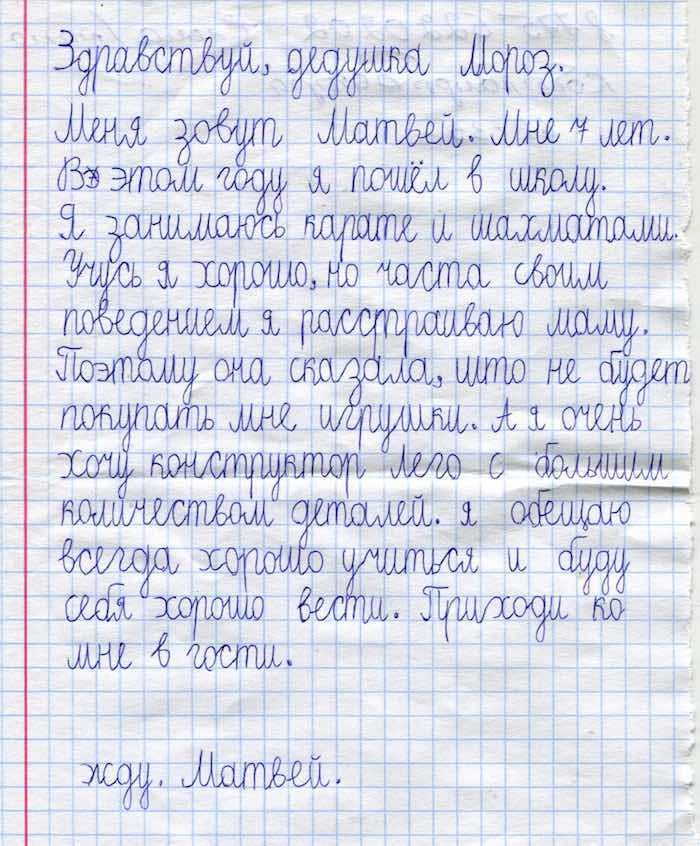 Здравствуй, дедушка Мороз.
Меня зовут Матвей. Мне 7 лет.
В этом году я пошёл в школу.
Я занимаюсь карате и шахматами.
Учусь я хорошо, но часта своим
поведением я расстраиваю маму.
Поэтому она сказала, што не будет
покупать мне игрушки. А я очень
хочу конструктор лего с большим
количеством деталей. я обещаю
всегда хорошо учиться и буду
себя хорошо вести. Приходи ко
мне в гости.
жду. Матвей.